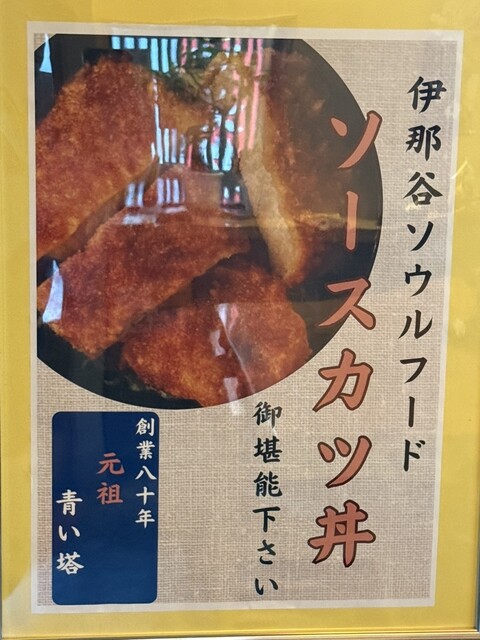 伊那谷ソウルフード
ソースカツ丼
御堪能下さい
創業八十年
元祖
青い塔